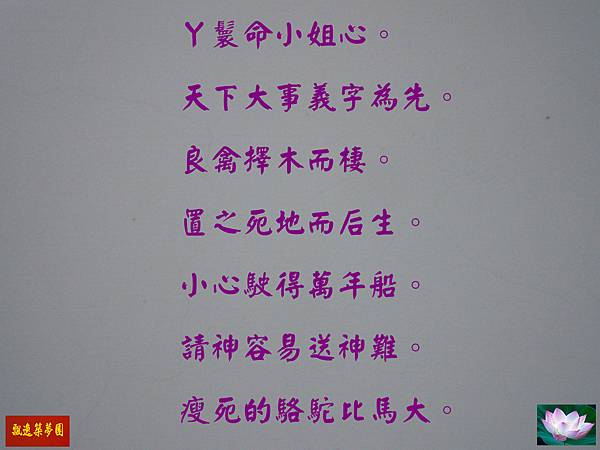 丫鬟命小姐心。
天下大事義字為先。
良禽擇木而棲。
置之死地而后生。
小心駛得萬年船。
請神容易送神難。
瘦死的駱駝比馬大。
飄逸築夢園